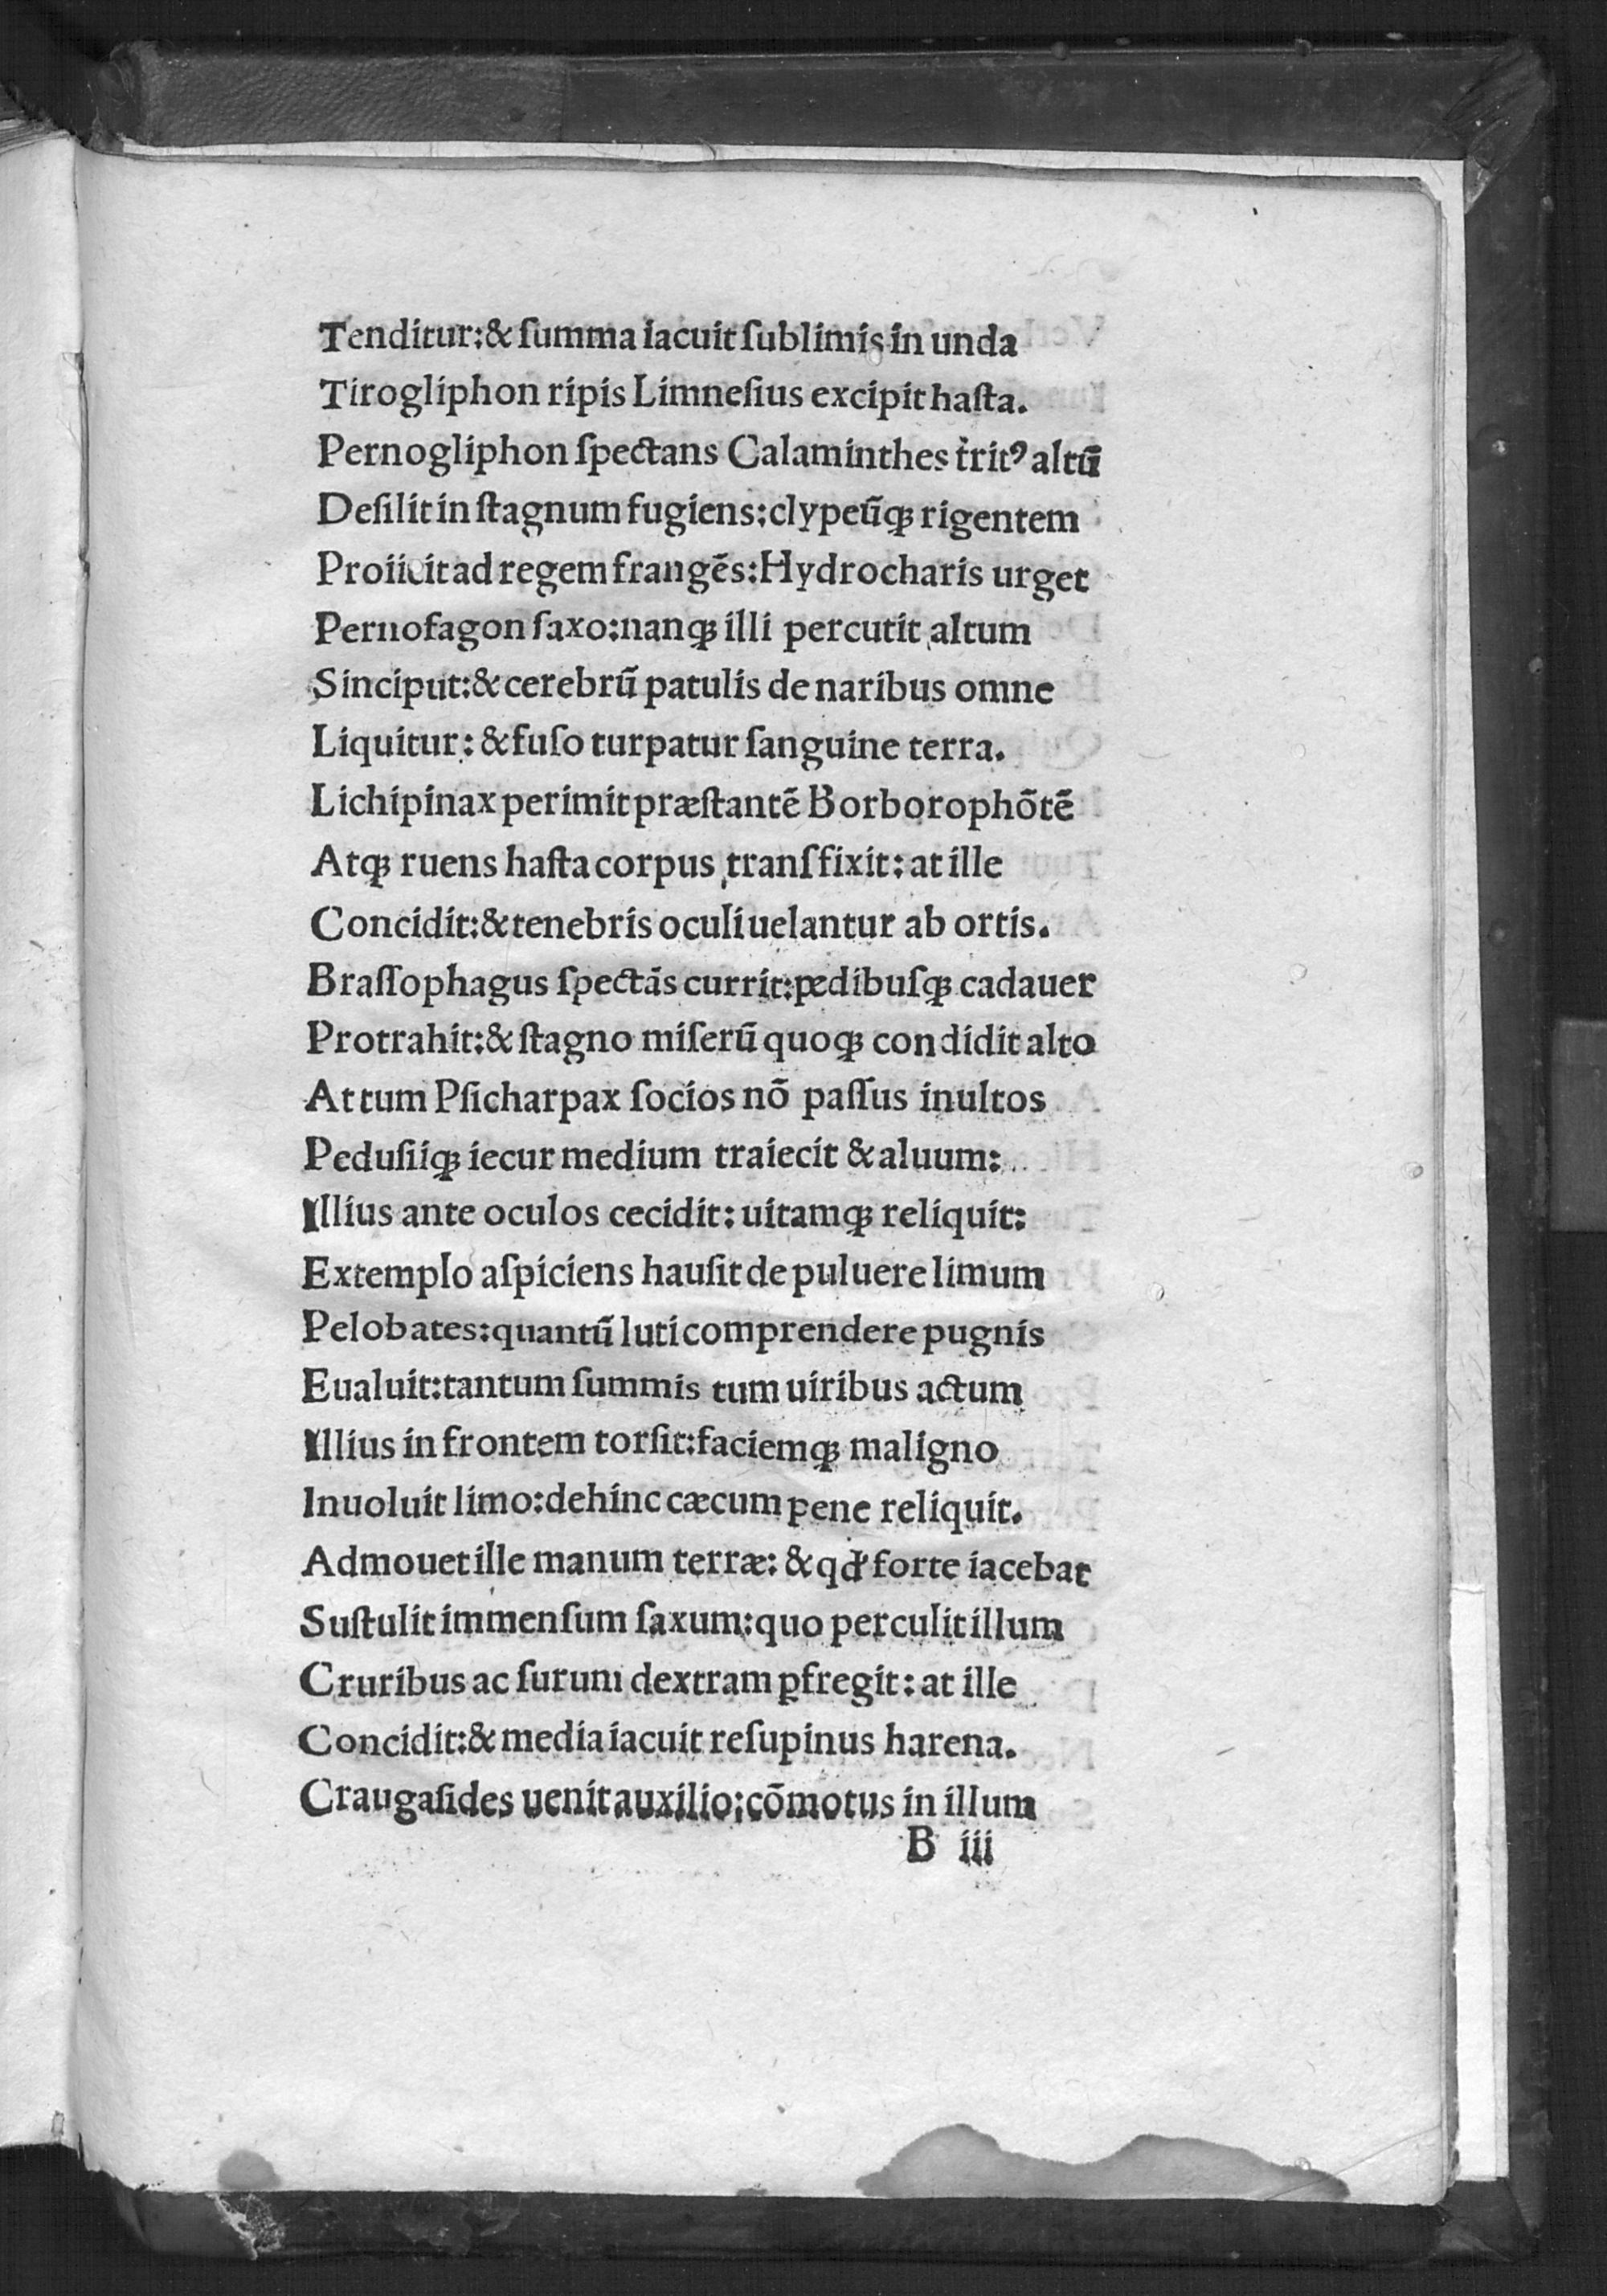 Tenditur:& ſumma iacuit ſublimis in unda
Tirogliphon ripis Limneſius excipit haſta.
Pernogliphon ſpectans Calaminthes t̓ritꝰ altū
Deſilit in ſtagnum fugiens:clypeūqꝫ rigentem
Proiicit ad regem frangēs:Hydrocharis urget
Pernofagon ſaxo:nanqꝫ illi percutit altum
Sinciput:& cerebrū patulis de naribus omne
Liquitur: & fuſo turpatur ſanguine terra.
Lichipinax perimit præſtantē Borborophōtē
Atqꝫ ruens haſta corpus tranſfixit: at ille
Concidit:& tenebris oculi uelantur ab ortis.
Braſſophagus ſpectās currit:pedibuſqꝫ cadauer
Protrahit:& ſtagno miſerū quoqꝫ condidit alto
At tum Pſicharpax ſocios nō paſſus inultos
Peduſiiqꝫ iecur medium traiecit & aluum:
Illius ante oculos cecidit: uitamqꝫ reliquit:
Extemplo aſpiciens hauſit de puluere limum
Pelobates:quantū luti comprendere pugnis
Eualuit:tantum ſummis tum uiribus actum
Illius in frontem torſit:faciemqꝫ maligno
Inuoluit limo:dehinc cæcum pene reliquit.
Admouet ille manum terræ: & qd̓ forte iacebat
Suſtulit immenſum ſaxum:quo perculit illum
Cruribus ac ſurum dextram ꝑfregit: at ille
Concidit:& media iacuit reſupinus harena.
Craugaſides uenit auxilio:cōmotus in illum
B iii